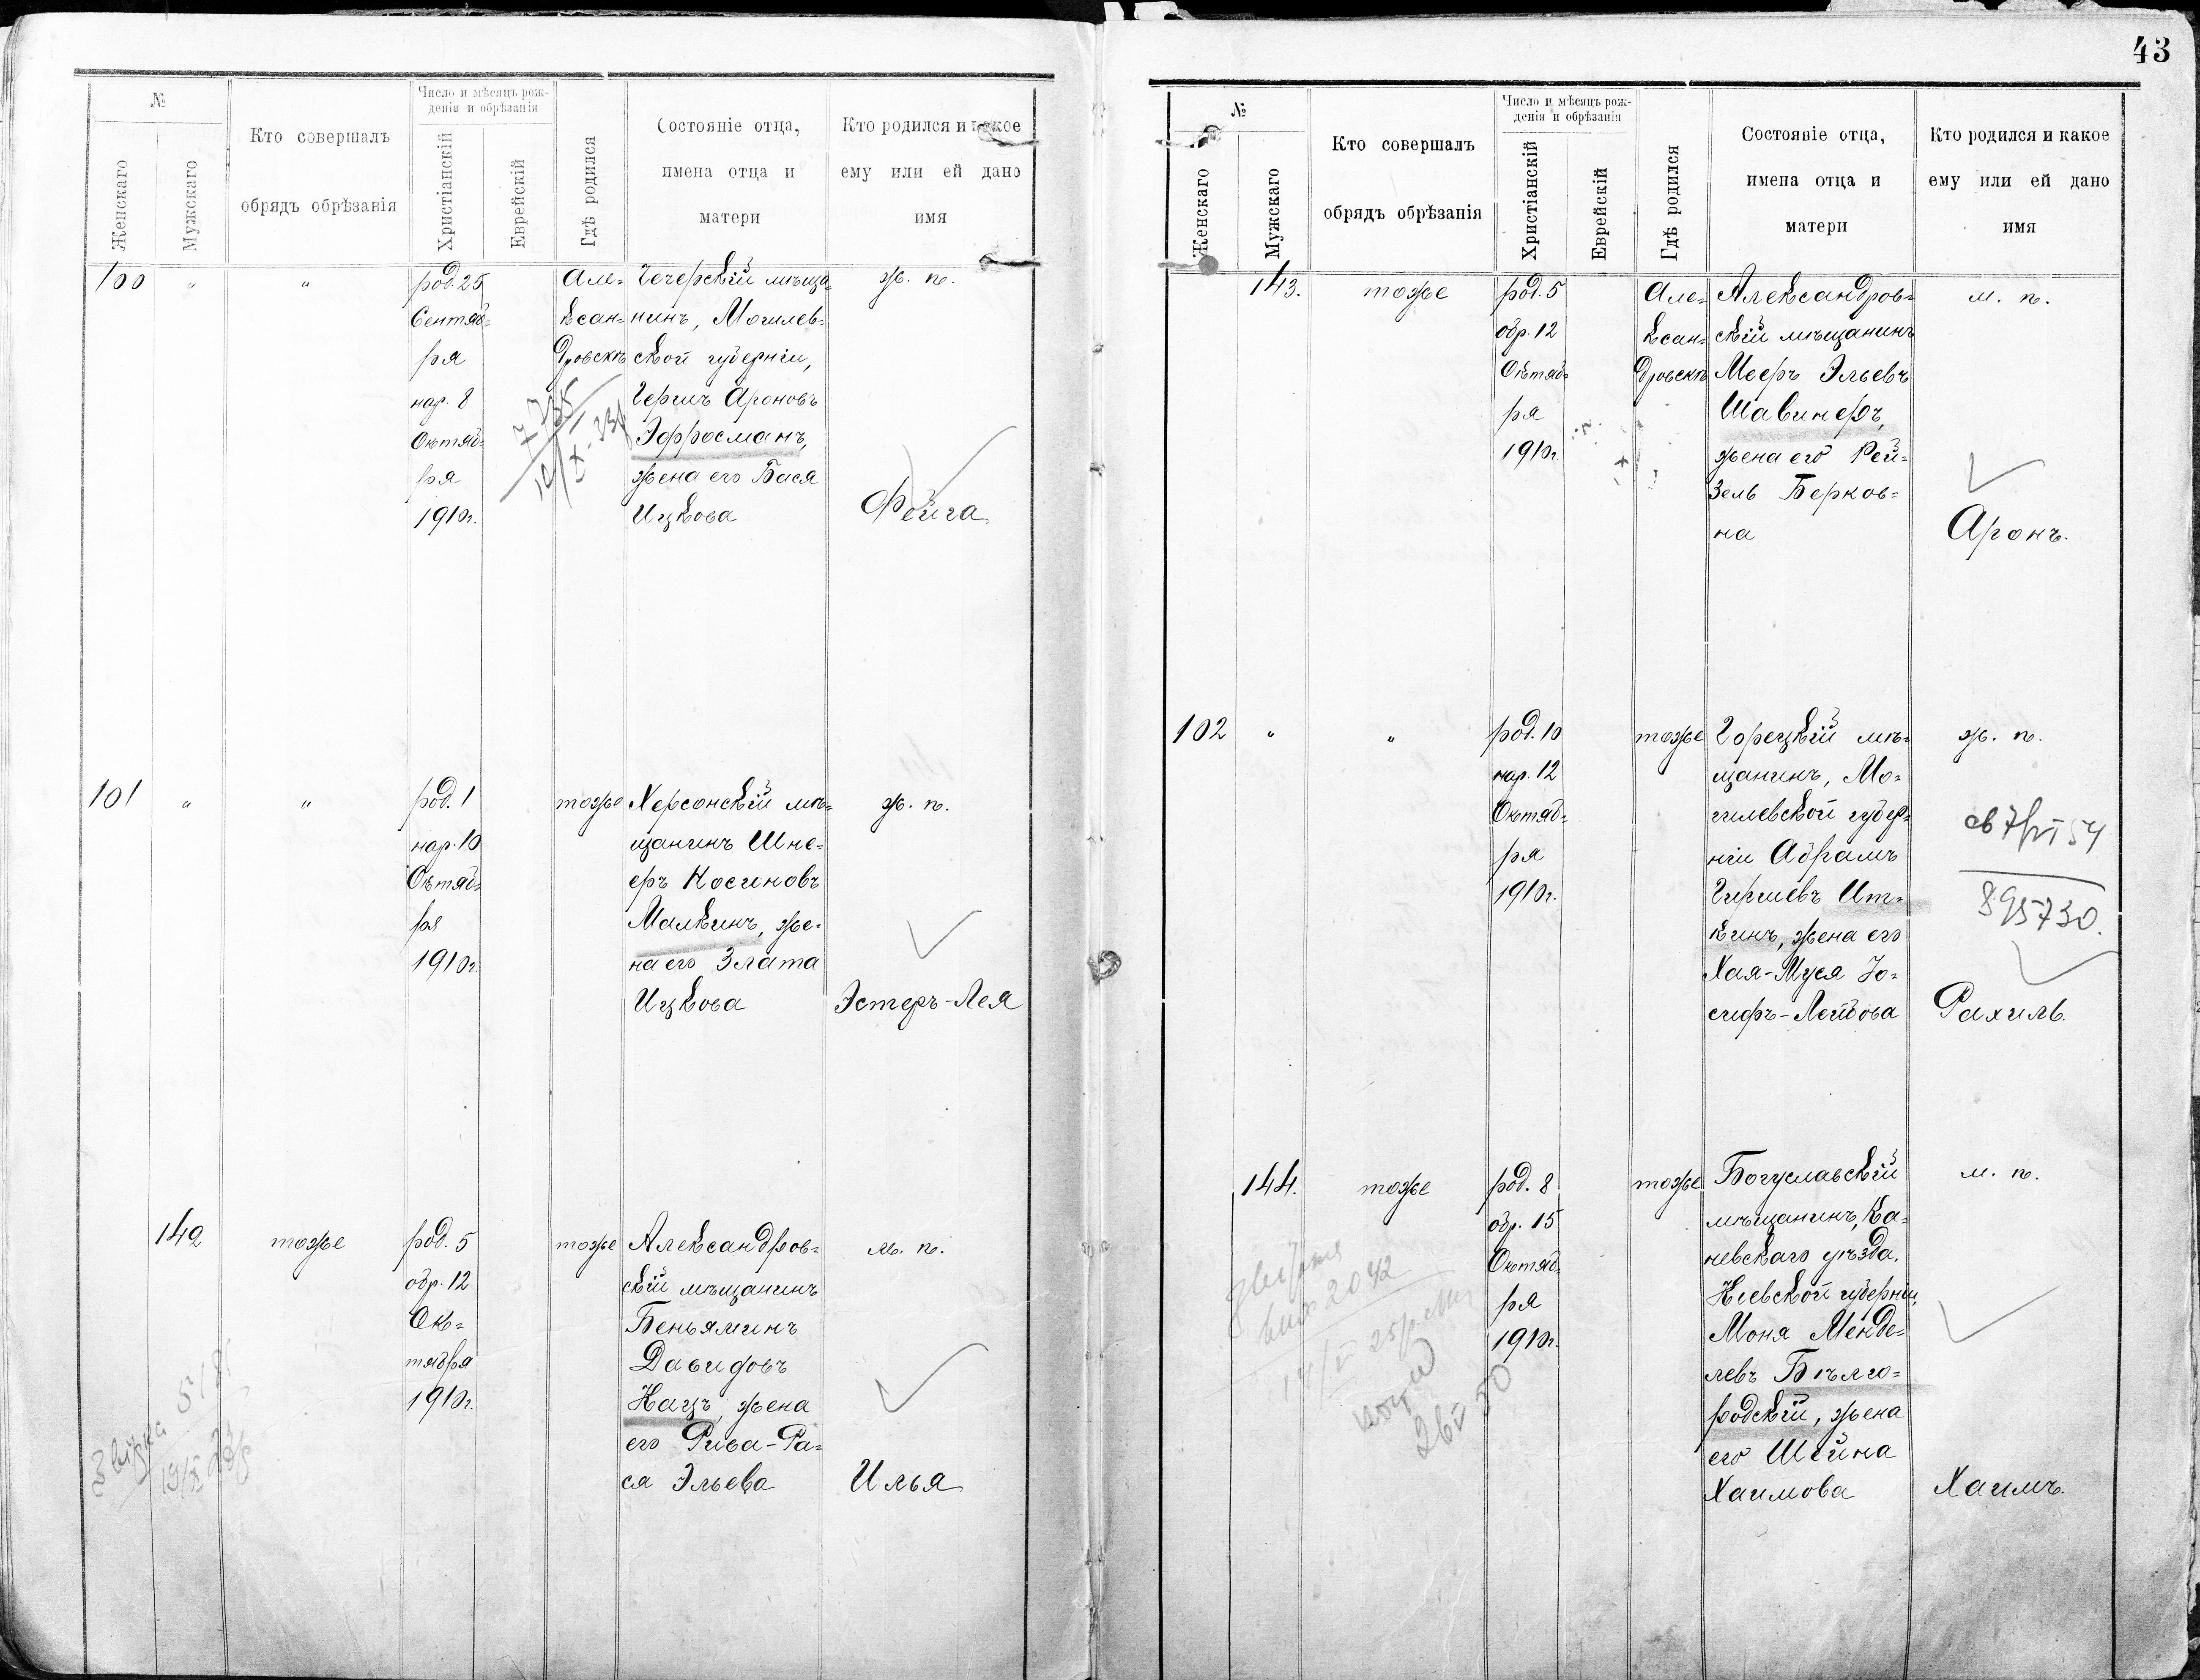 №
Женскаго
Мужскаго
Кто совершалъ
обрядъ обрѣзанія
Число и мѣсяцъ рож-
денія и обрѣзанія
Христіанскій
Еврейскій
Гдѣ родился
Состояніе отца,
имена отца и
матери
Кто родился и какое
ему или ей дано
имя
100
"
"
род. 25
Сентяб=
ря
нар. 8
Октяб=
ря
1910г.
Але=
ксан=
дровскѣ
Чечерскій мѣща=
нинъ, Могилев=
ской губерніи,
Гершъ Ароновъ
Эфросманъ,
жена его Бася
Ицкова
ж. п.
Фейга
101
"
"
род. 1
нар. 10
Октяб=
ря
1910г.
тоже
Херсонскій мѣ=
щанинъ Шне=
еръ Носиновъ
Малкинъ, же=
на его Злата
Ицкова
ж. п.
Эстеръ-Лея
142
тоже
род. 5
обр. 12
Ок=
тября
1910г.
тоже
Александров=
скій мѣщанинъ
Беньяминъ
Давидовъ
Кацъ, жена
его Рива-Ра=
ся Эльева
м. п.
Илья
43
№
Женскаго
Мужскаго
Кто совершалъ
обрядъ обрѣзанія
Число и мѣсяцъ рож-
денія и обрѣзанія
Христіанскій
Еврейскій
Гдѣ родился
Состояніе отца,
имена отца и
матери
Кто родился и какое
ему или ей дано
имя
143.
тоже
род. 5
обр. 12
Октяб=
ря
1910г.
Але=
ксан=
дровскѣ
Александров=
скій мѣщанинъ
Мееръ Эльевъ
Шавинеръ,
жена его Рей=
зель Берков=
на
м. п.
Аронъ.
102
"
"
род. 10
нар. 12
Октяб=
ря
1910г.
тоже
Горецкій мѣ=
щанинъ, Мо=
гилевской губер=
ніи Абрамъ
Гиршевъ Ит=
кинъ, жена его
Хая-Муся Іо=
сифъ-Лейбова
ж. п.
895730.
Рахиль.
144.
тоже
род. 8
обр. 15
Октяб=
ря
1910г.
тоже
Богуславскій
мѣщанинъ, Ка=
невскаго уѣзда,
Кіевской губерніи,
Моня Менде=
левъ Бѣлго=
родскій, жена
его Шейна
Хаимова
м. п.
Хаимъ.